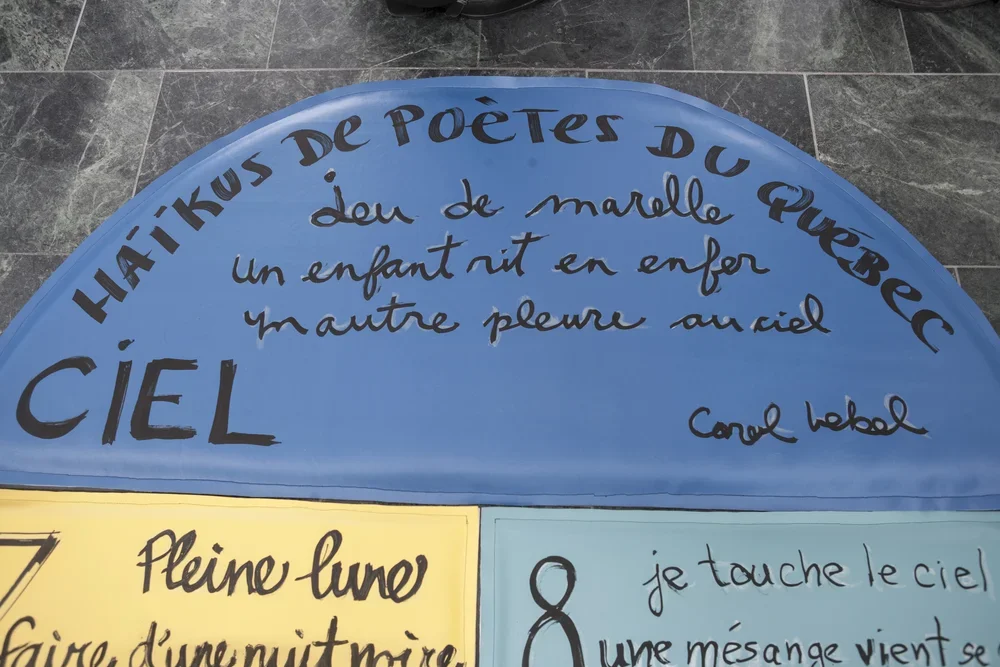 HAÏKUS DE POÈTES DU QUÉBEC
Jeu de marelle
un enfant rit en enfer
un autre pleure au ciel
CIEL
Carol Lebel
7
Pleine lune
faire d'une nuit noire
8
je touche le ciel
une mésange vient se